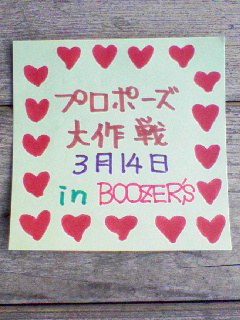 プロポーズ
大作戦
3月14日
in BOOZER'S